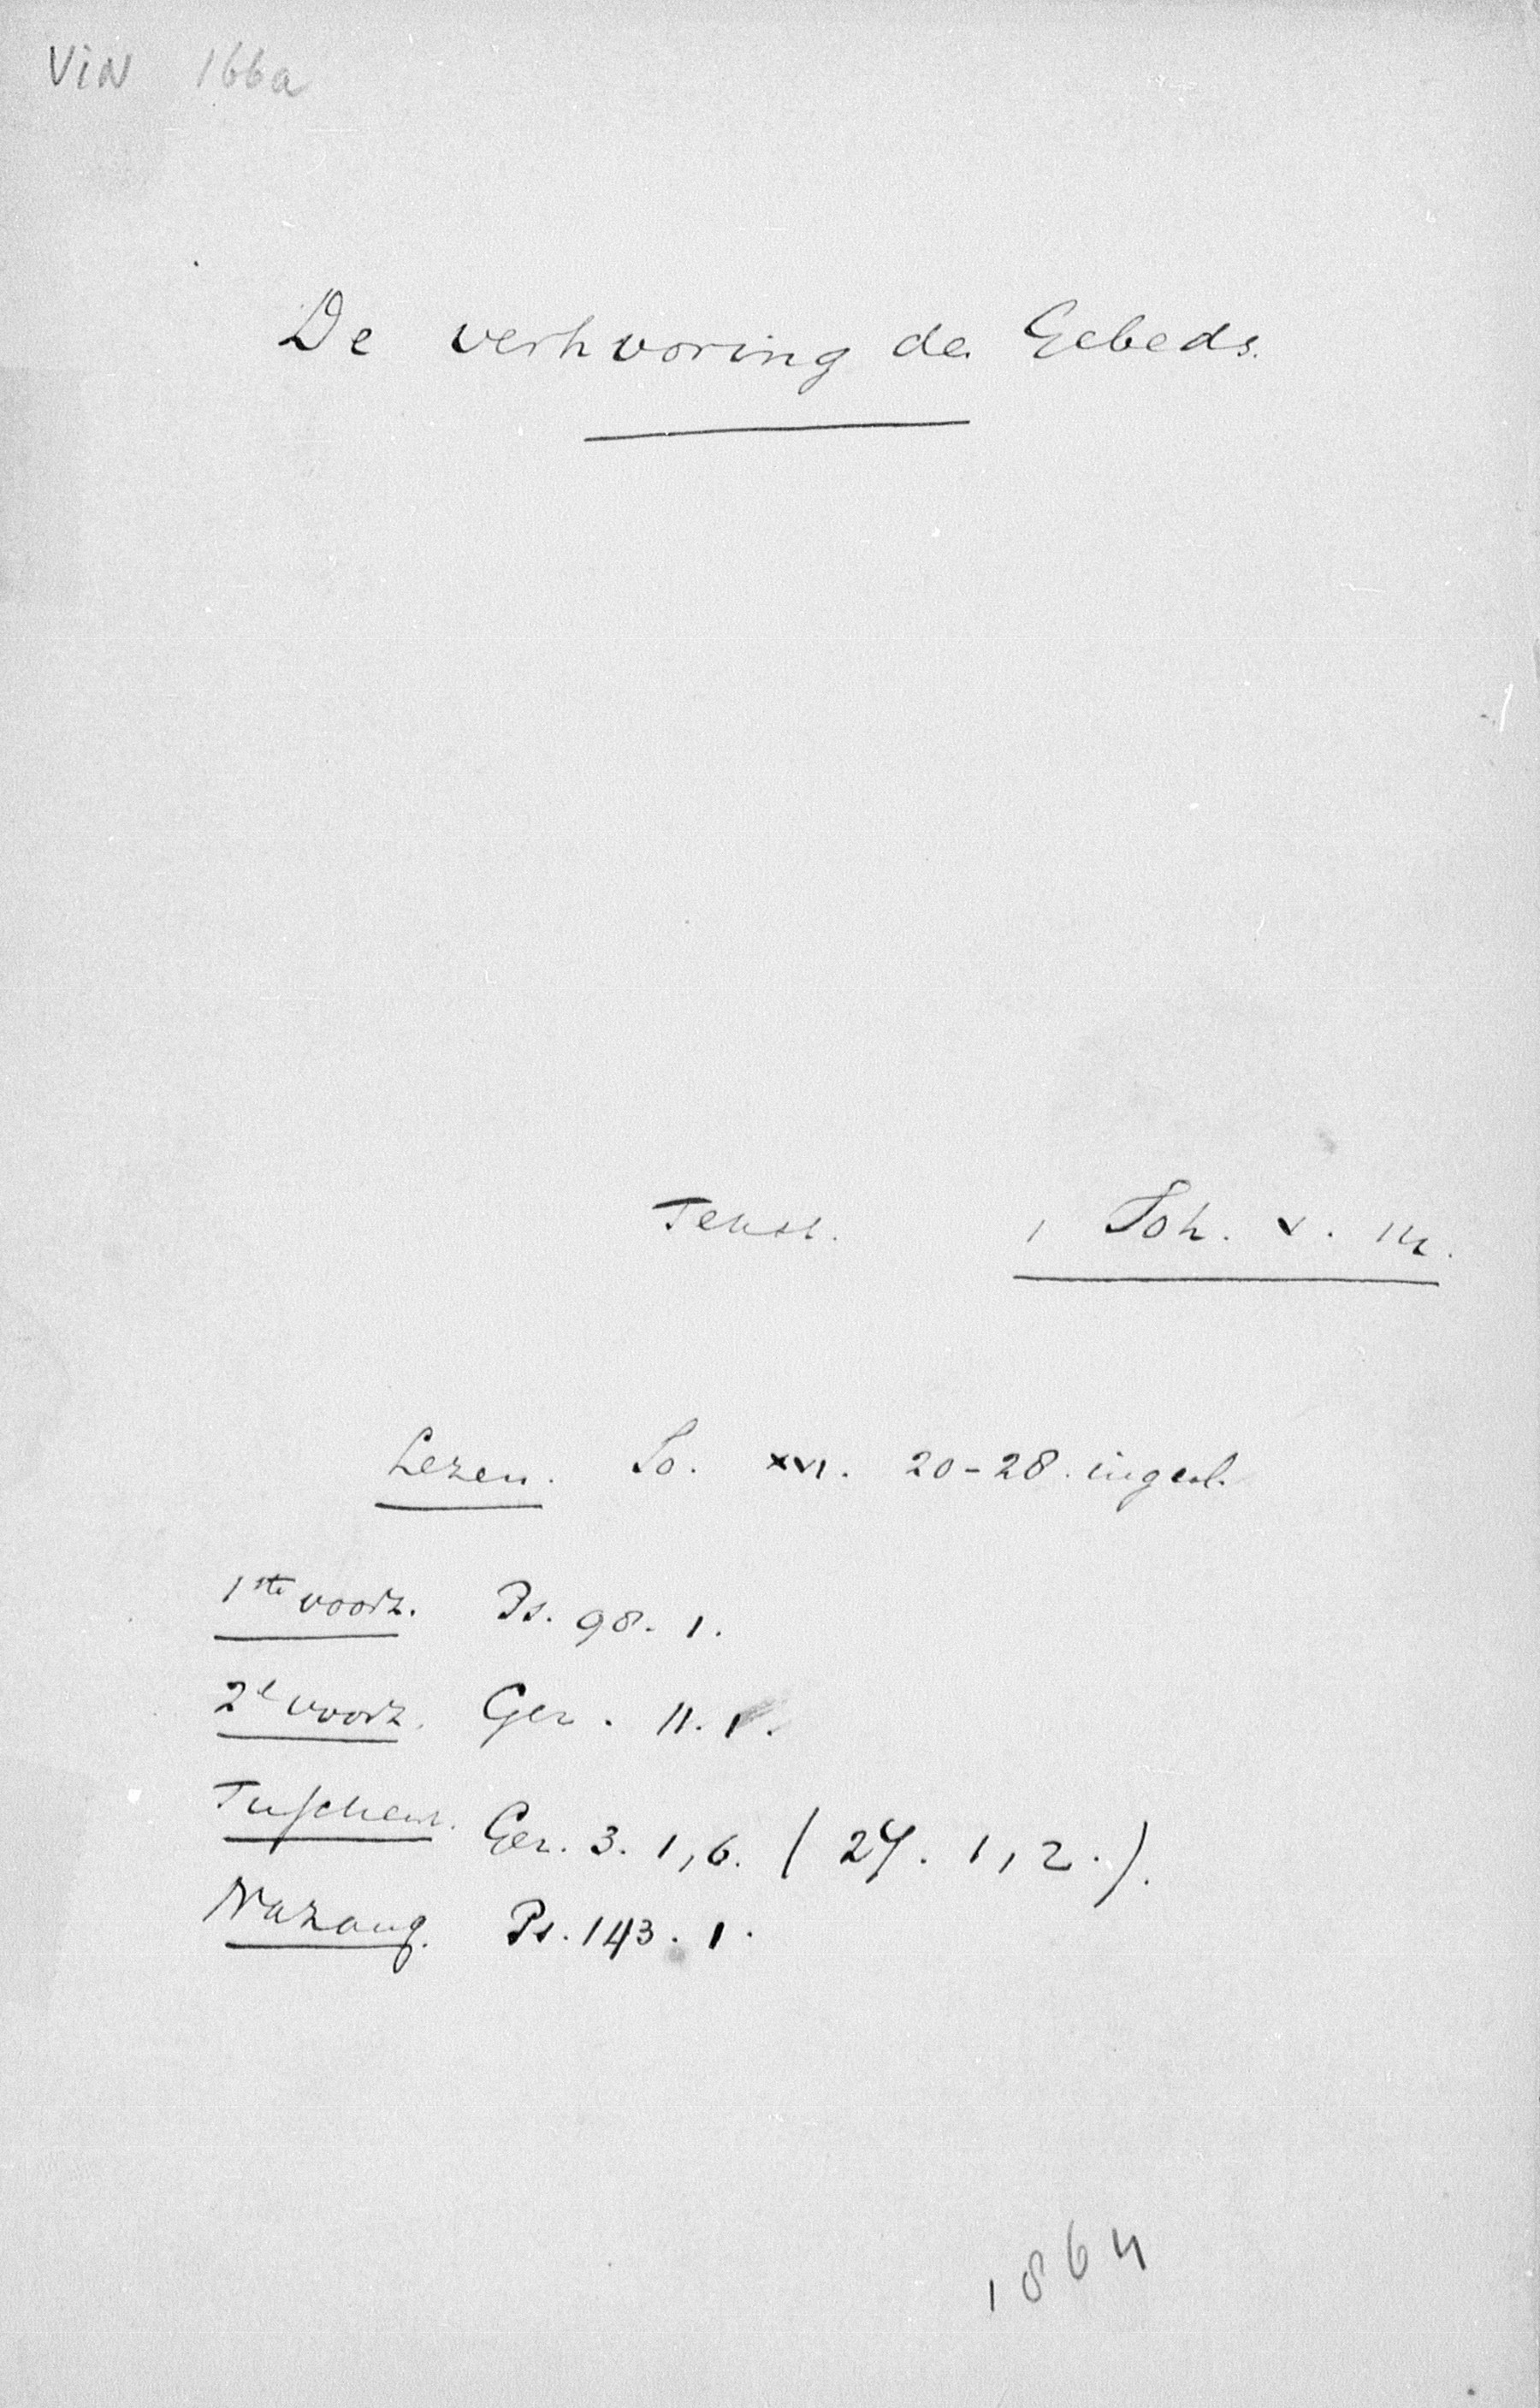 ViN 166a
De verhooring des Gebeds.
Tekst. 1 Joh. V. 14.
Lezen. Jo. XVI. 20-28. ingesl.
1ste voorz. Ps. 98. 1.
2e voorz. Gez. 11. 1.
Tusschenz. Gez. 3. 1, 6. (27. 1, 2.).
Nazang. Ps. 143. 1.
1864